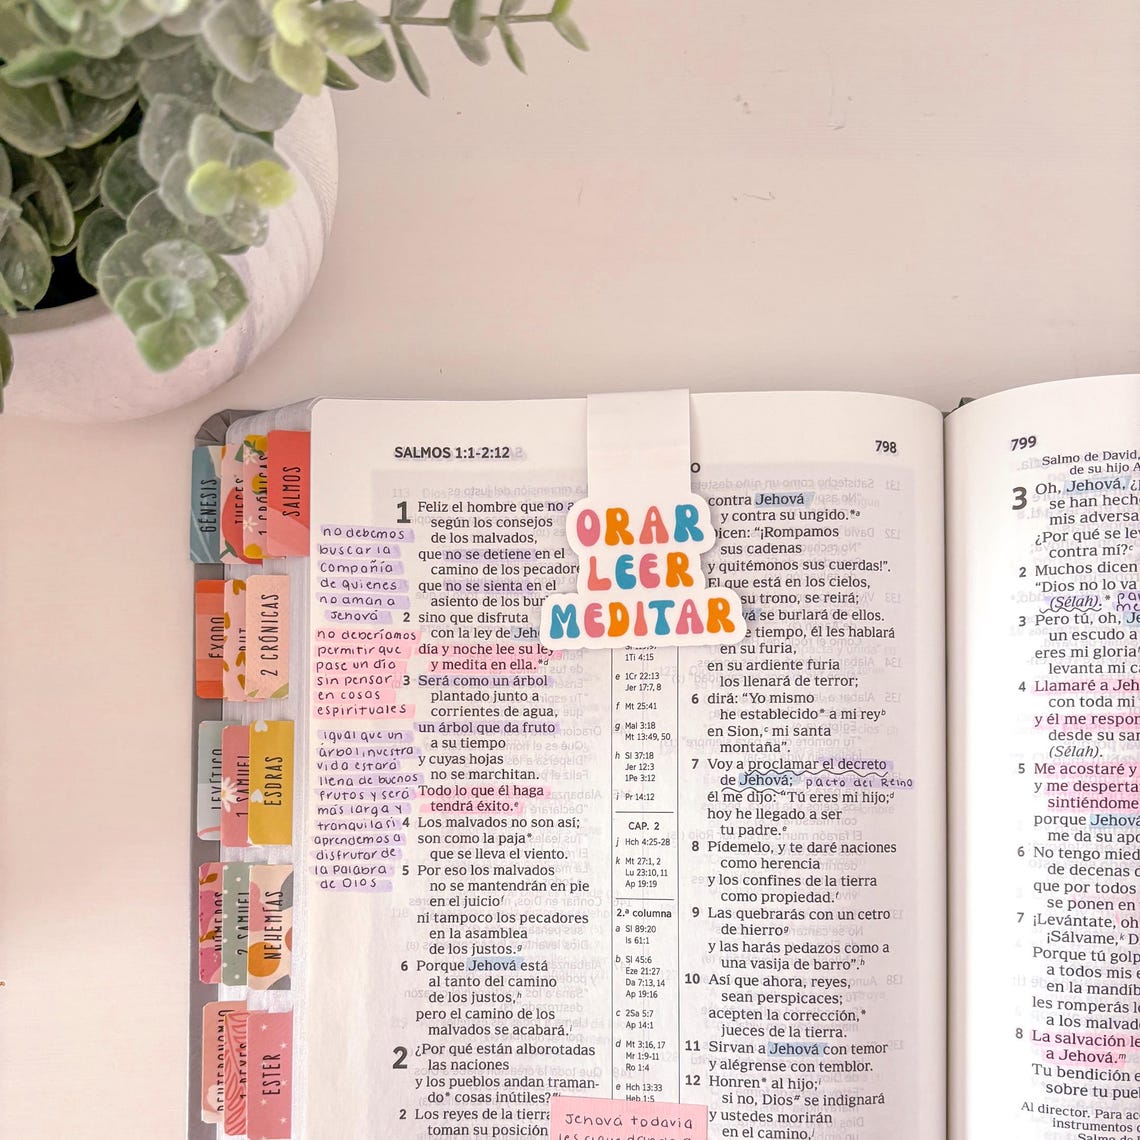 GÉNESIS
JUECES
1 CRÓNICAS
SALMOS
ÉXODO
RUT
2 CRÓNICAS
LEVÍTICO
1 SAMUEL
ESDRAS
NÚMEROS
2 SAMUEL
NEHEMÍAS
DEUTERONOMIO
1 REYES
ESTER
no debemos
buscar la
compañía
de quienes
no aman a
Jehová
no deberíamos
permitir que
pase un día
sin pensar
en cosas
espirituales
igual que un
árbol nuestra
vida estará
llena de buenos
frutos y será
más larga y
tranquila si
aprendemos a
disfrutar de
la Palabra
de Dios
SALMOS 1:1-2:12
798
1 Feliz el hombre que no a
según los consejos
de los malvados,
que no se detiene en el
camino de los pecadore
que no se sienta en el
asiento de los bur
2 sino que disfruta
con la ley de Jeh
día y noche lee su ley
y medita en ella.*d
3 Será como un árbol
plantado junto a
corrientes de agua,
un árbol que da fruto
a su tiempo
y cuyas hojas
no se marchitan.
Todo lo que él haga
tendrá éxito.e
4 Los malvados no son así;
son como la paja*
que se lleva el viento.
5 Por eso los malvados
no se mantendrán en pie
en el juiciof
ni tampoco los pecadores
en la asamblea
de los justos.g
6 Porque Jehová está
al tanto del camino
de los justos,h
pero el camino de los
malvados se acabará.i
2 ¿Por qué están alborotadas
las naciones
y los pueblos andan traman-
do* cosas inútiles?
2 Los reyes de la tierra
toman su posición
ORAR
LEER
MEDITAR
1Ti 4:15
e 1Cr 22:13
Jer 17:7, 8
f Mt 25:41
g Mal 3:18
Mt 13:49, 50
h Sl 37:18
Jer 12:3
1Pe 3:12
i Pr 14:12
CAP. 2
j Hch 4:25-28
k Mt 27:1, 2
Lu 23:10, 11
Ap 19:19
2.ª columna
a Sl 89:20
Is 61:1
b Sl 45:6
Eze 21:27
Da 7:13, 14
Ap 19:16
c 2Sa 5:7
Ap 14:1
d Mt 3:16, 17
Mr 1:9-11
Ro 1:4
e Hch 13:33
Heb 1:5
contra Jehová
y contra su ungido.*a
icen: “¡Rompamos
sus cadenas
y quitémonos sus cuerdas!”.
El que está en los cielos,
su trono, se reirá;
vá se burlará de ellos.
e tiempo, él les hablará
en su furia,
en su ardiente furia
los llenará de terror;
6 dirá: “Yo mismo
he establecido* a mi reyb
en Sion,c mi santa
montaña”.
7 Voy a proclamar el decreto
de Jehová; pacto del Reino
él me dijo: “Tú eres mi hijo;d
hoy he llegado a ser
tu padre.e
8 Pídemelo, y te daré naciones
como herencia
y los confines de la tierra
como propiedad.f
9 Las quebrarás con un cetro
de hierrog
y las harás pedazos como a
una vasija de barro”.h
10 Así que ahora, reyes,
sean perspicaces;
acepten la corrección,*
jueces de la tierra.
11 Sirvan a Jehová con temor
y alégrense con temblor.
12 Honren* al hijo;i
si no, Dios* se indignará
y ustedes morirán
en el camino,j
Jehová todavía
799
Salmo de David,
de su hijo A
3 Oh, Jehová, ¿
se han hech
mis adversa
¿Por qué se lev
contra mí?c
2 Muchos dicen
“Dios no lo va
(Sélah).*
3 Pero tú, oh, Je
un escudo a
eres mi gloria
levanta mi c
4 Llamaré a Jeh
con toda mi
y él me respon
desde su san
(Sélah).
5 Me acostaré y
y me desperta
sintiéndome
porque Jehová
me da su apo
6 No tengo mied
de decenas d
que por todos
se ponen en
7 ¡Levántate, oh
¡Sálvame,k D
Porque tú golp
a todos mis e
en la mandíb
les romperás lo
a los malvado
8 La salvación le
a Jehová.m
Tu bendición e
sobre tu pue
Al director. Para ac
instrumentos
Salmo de